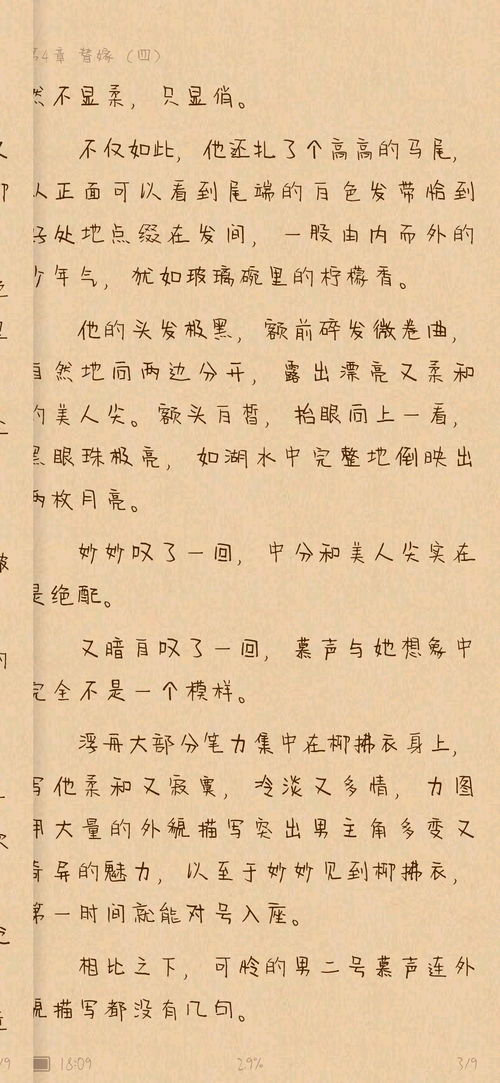 第4章 替嫁（四）
然不显柔，只显俏。
不仅如此，他还扎了个高高的马尾，
从正面可以看到尾端的白色发带恰到
好处地点缀在发间，一股由内而外的
少年气，犹如玻璃碗里的柠檬香。
他的头发极黑，额前碎发微卷曲，
自然地向两边分开，露出漂亮又柔和
的美人尖。额头白皙，抬眼向上一看，
黑眼珠极亮，如湖水中完整地倒映出
两枚月亮。
妙妙叹了一回，中分和美人尖实在
是绝配。
又暗自叹了一回，慕声与她想象中
完全不是一个模样。
浮舟大部分笔力集中在柳拂衣身上，
写他柔和又寂寞，冷淡又多情，力图
用大量的外貌描写突出男主角多变又
奇异的魅力，以至于妙妙见到柳拂衣，
第一时间就能对号入座。
相比之下，可怜的男二号慕声连外
貌描写都没有几句。
18:09
2.9%
3/9